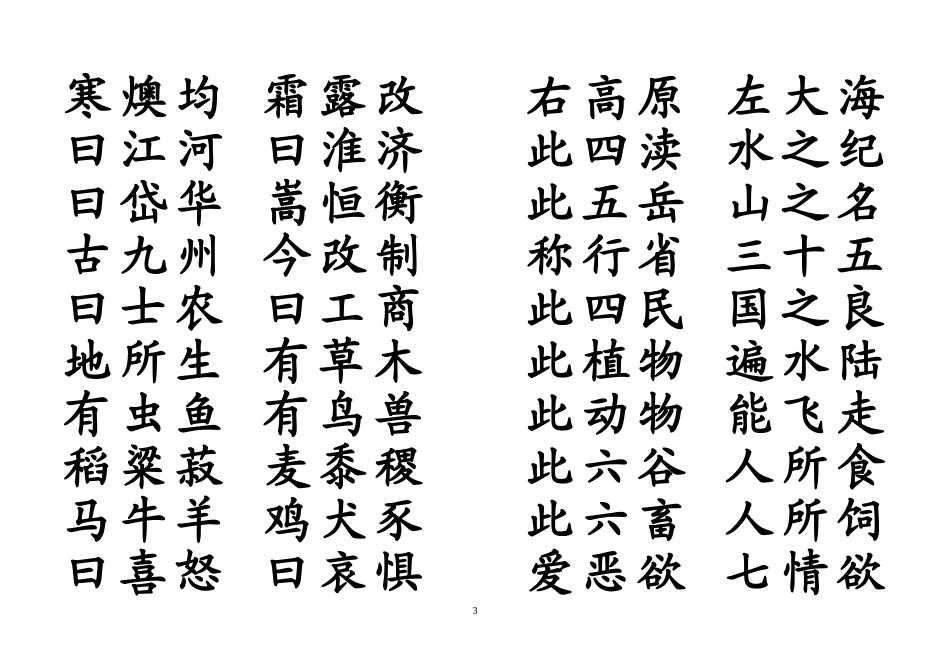 寒燠均 霜露改 右高原 左大海
曰江河 曰淮济 此四渎 水之纪
曰岱华 嵩恒衡 此五岳 山之名
古九州 今改制 称行省 三十五
曰士农 曰工商 此四民 国之良
地所生 有草木 此植物 遍水陆
有虫鱼 有鸟兽 此动物 能飞走
稻粱菽 麦黍稷 此六谷 人所食
马牛羊 鸡犬豕 此六畜 人所饲
曰喜怒 曰哀惧 爱恶欲 七情欲
3